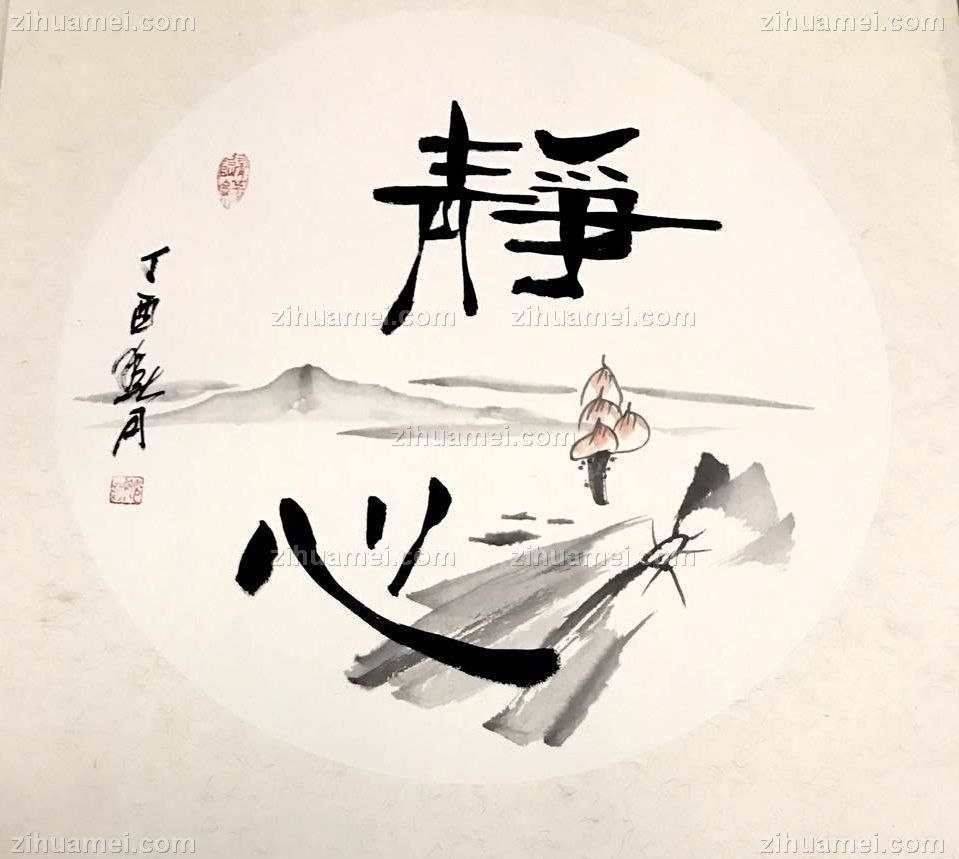 zihuamei.com zihuamei.com
靜
心
丁酉
月
zihuamei.com zihuamei.com
zihuamei.com zihuamei.com
zihuamei.com zihuamei.com